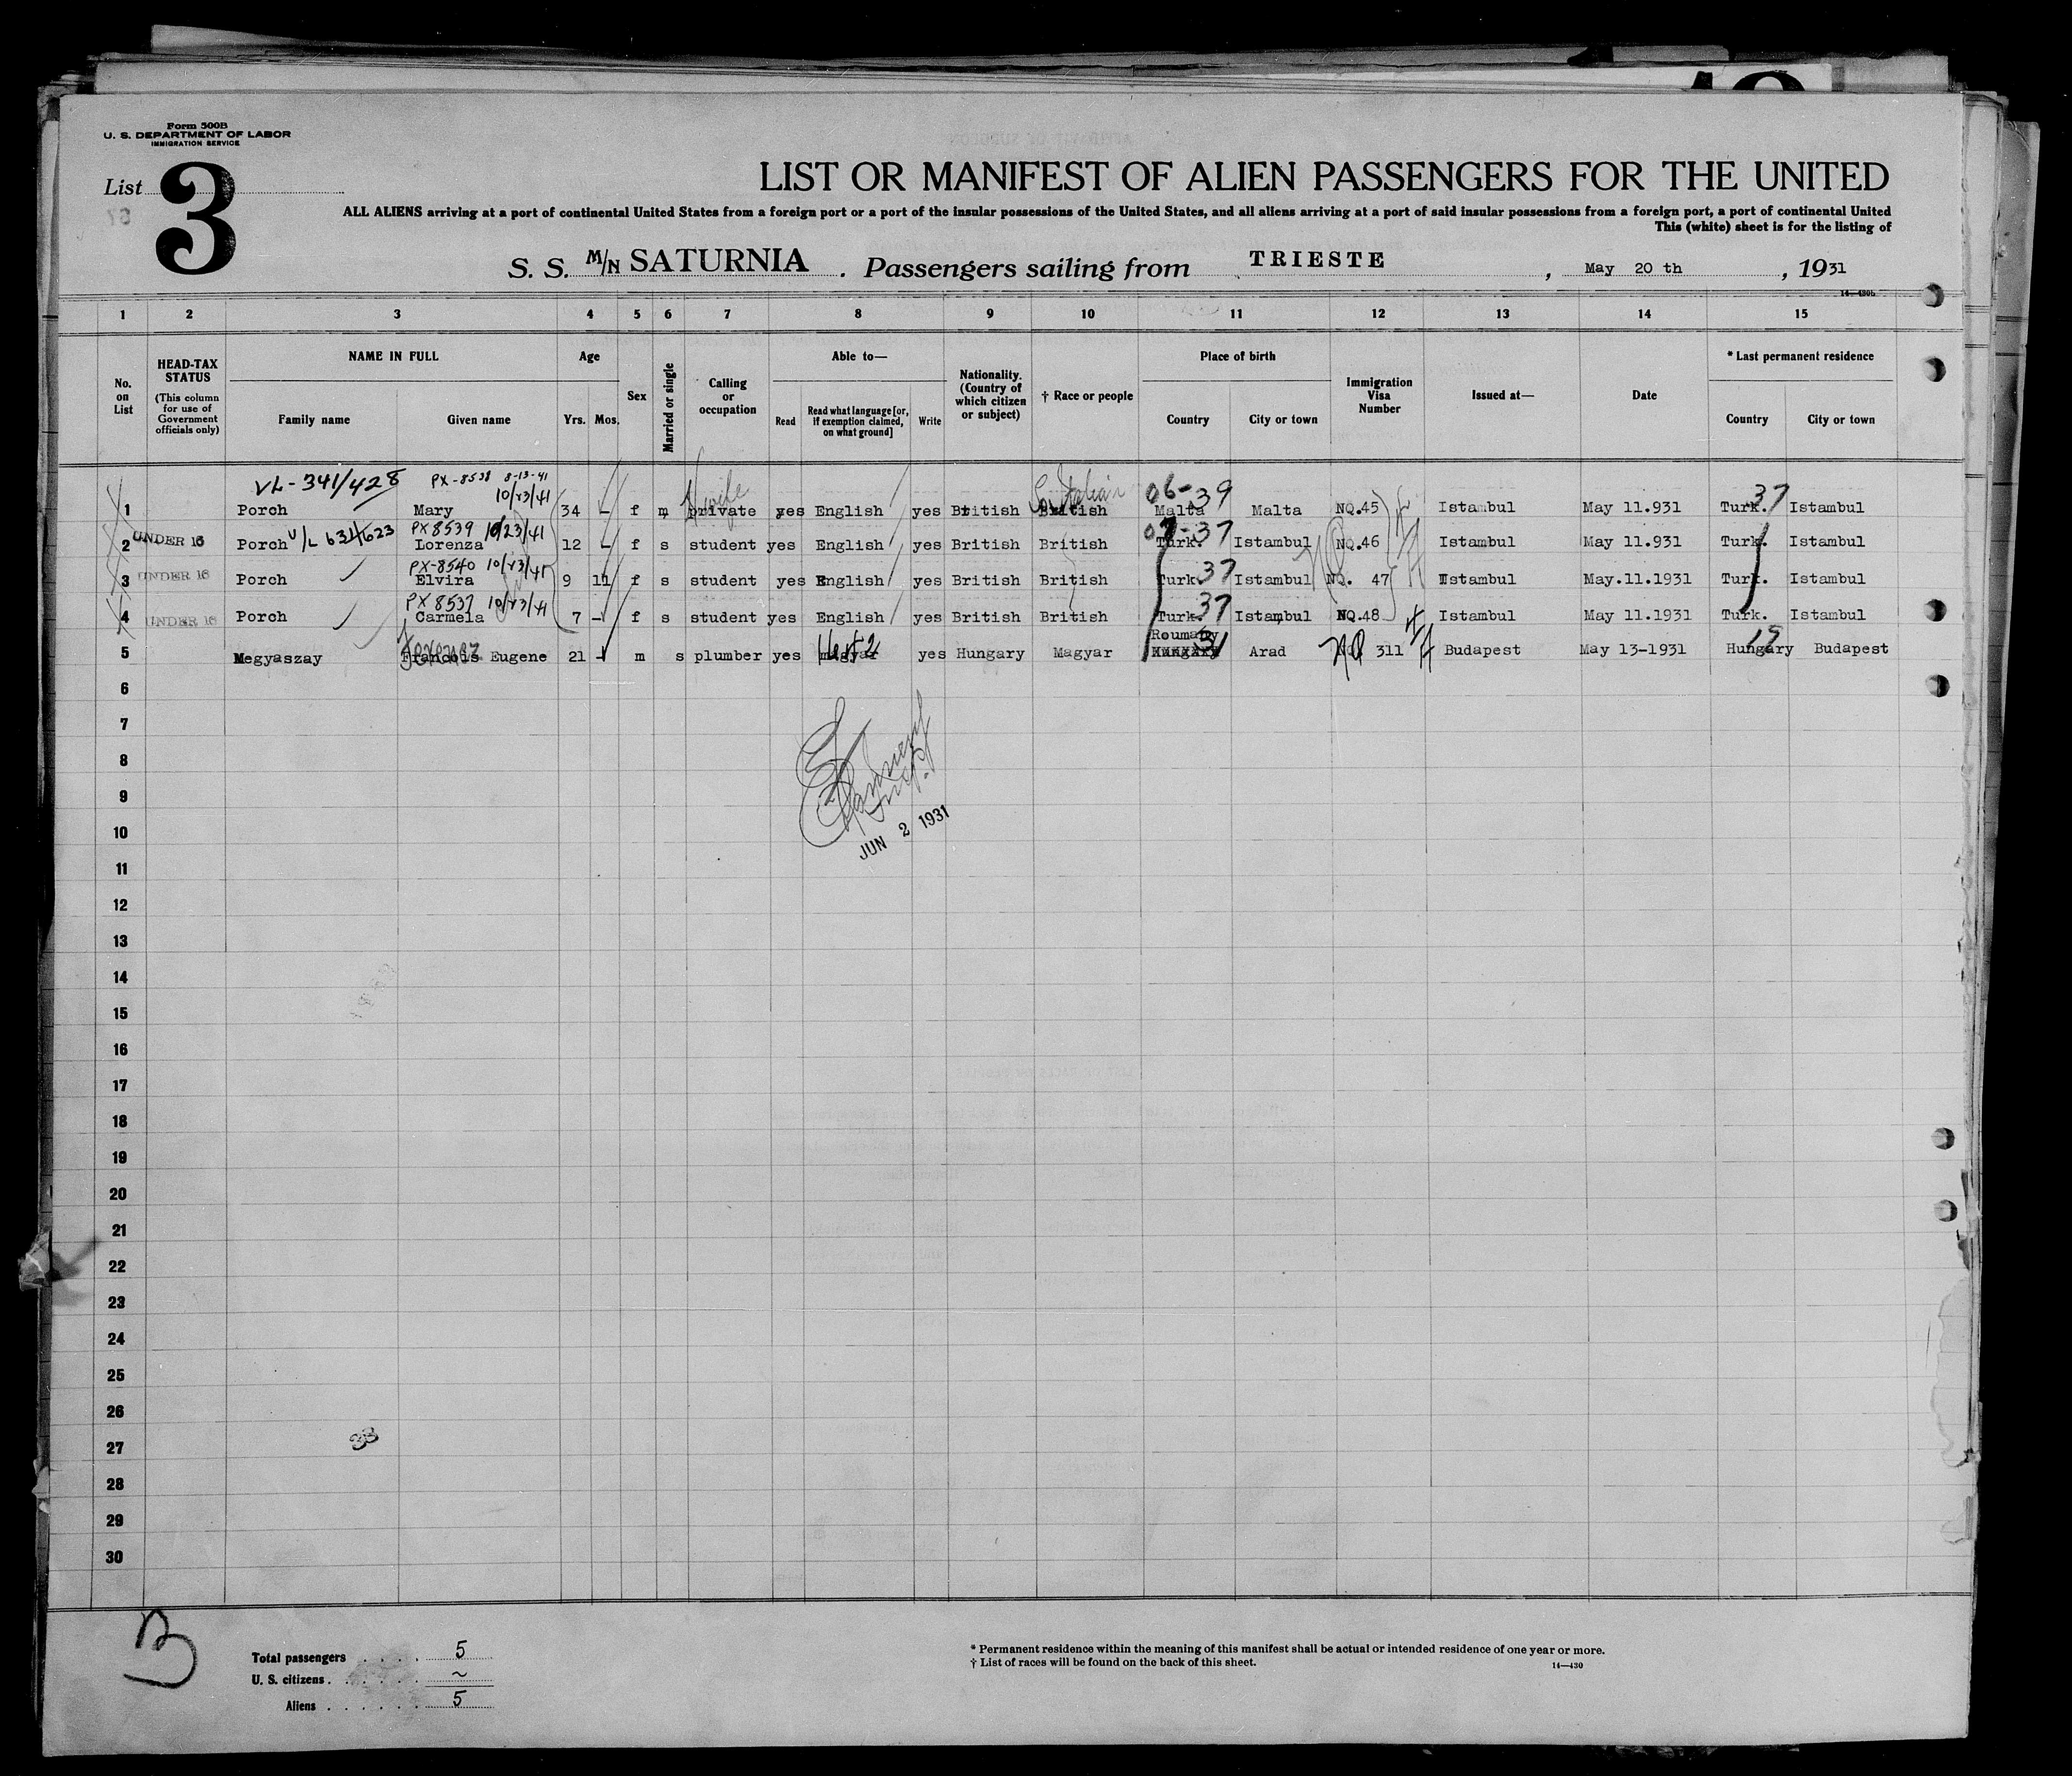 Form 500B
U. S. DEPARTMENT OF LABOR
IMMIGRATION SERVICE
List 3
LIST OR MANIFEST OF ALIEN PASSENGERS FOR THE UNITED
ALL ALIENS arriving at a port of continental United States from a foreign port or a port of the insular possessions of the United States, and all aliens arriving at a port of said insular possessions from a foreign port, a port of continental United
This (white) sheet is for the listing of
S. S. M/N SATURNIA . Passengers sailing from TRIESTE , May 20 th , 1931
14—430b
1 2 3 4 5 6 7 8 9 10 11 12 13 14 15
No. on List
HEAD-TAX STATUS (This column for use of Government officials only)
NAME IN FULL
Family name Given name
Age
Yrs. Mos.
Sex
Married or single
Calling or occupation
Able to—
Read Read what language [or, if exemption claimed, on what ground] Write
Nationality. (Country of which citizen or subject)
† Race or people
Place of birth
Country City or town
Immigration Visa Number
Issued at—
Date
* Last permanent residence
Country City or town
VL-341/428 PX-8538 8-13-41
10/23/41 H wife So Italian 06-39 37
1 Porch Mary 34 - f m private yes English yes British British Malta Malta NQ.45 Istambul May 11.931 Turk. Istambul
V/L 631/623 PX 8539 10/23/41 37
2 UNDER 16 Porch Lorenza 12 - f s student yes English yes British British Turk. Istambul NQ.46 Istambul May 11.931 Turk. Istambul
PX-8540 10/23/41 37
3 UNDER 16 Porch Elvira 9 11 f s student yes English yes British British Turk. Istambul NQ. 47 Istambul May.11.1931 Turk. Istambul
PX 8537 10/23/41 37
4 UNDER 16 Porch Carmela 7 - f s student yes English yes British British Turk. Istambul NQ.48 Istambul May 11.1931 Turk. Istambul
Roumany
5 Megyaszay Francois Eugene 21 - m s plumber yes magyar yes Hungary Magyar Hungary 31 Arad NQ 311 Budapest May 13-1931 Hungary Budapest
6
7
8
9
10
JUN 2 1931
11
12
13
14
15
16
17
18
19
20
21
22
23
24
25
26
27
33
28
29
30
Total passengers . . . . 5
U. S. citizens . . . . . . ~
Aliens . . . . . . 5
* Permanent residence within the meaning of this manifest shall be actual or intended residence of one year or more.
† List of races will be found on the back of this sheet.
14—430